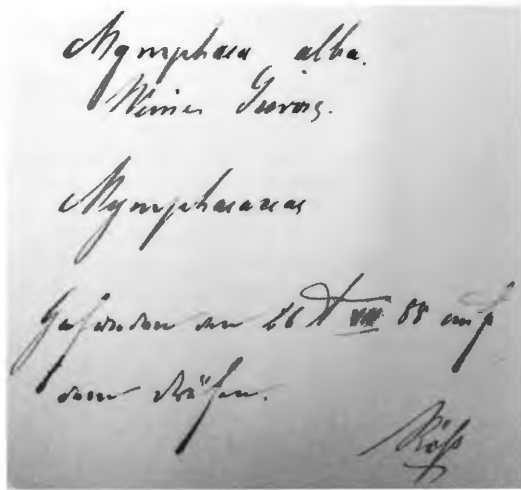 Nymphaea alba.
Weisse Seerose.
Nymphaeaceae
Gefunden den 26t VIII 88 auf
dem